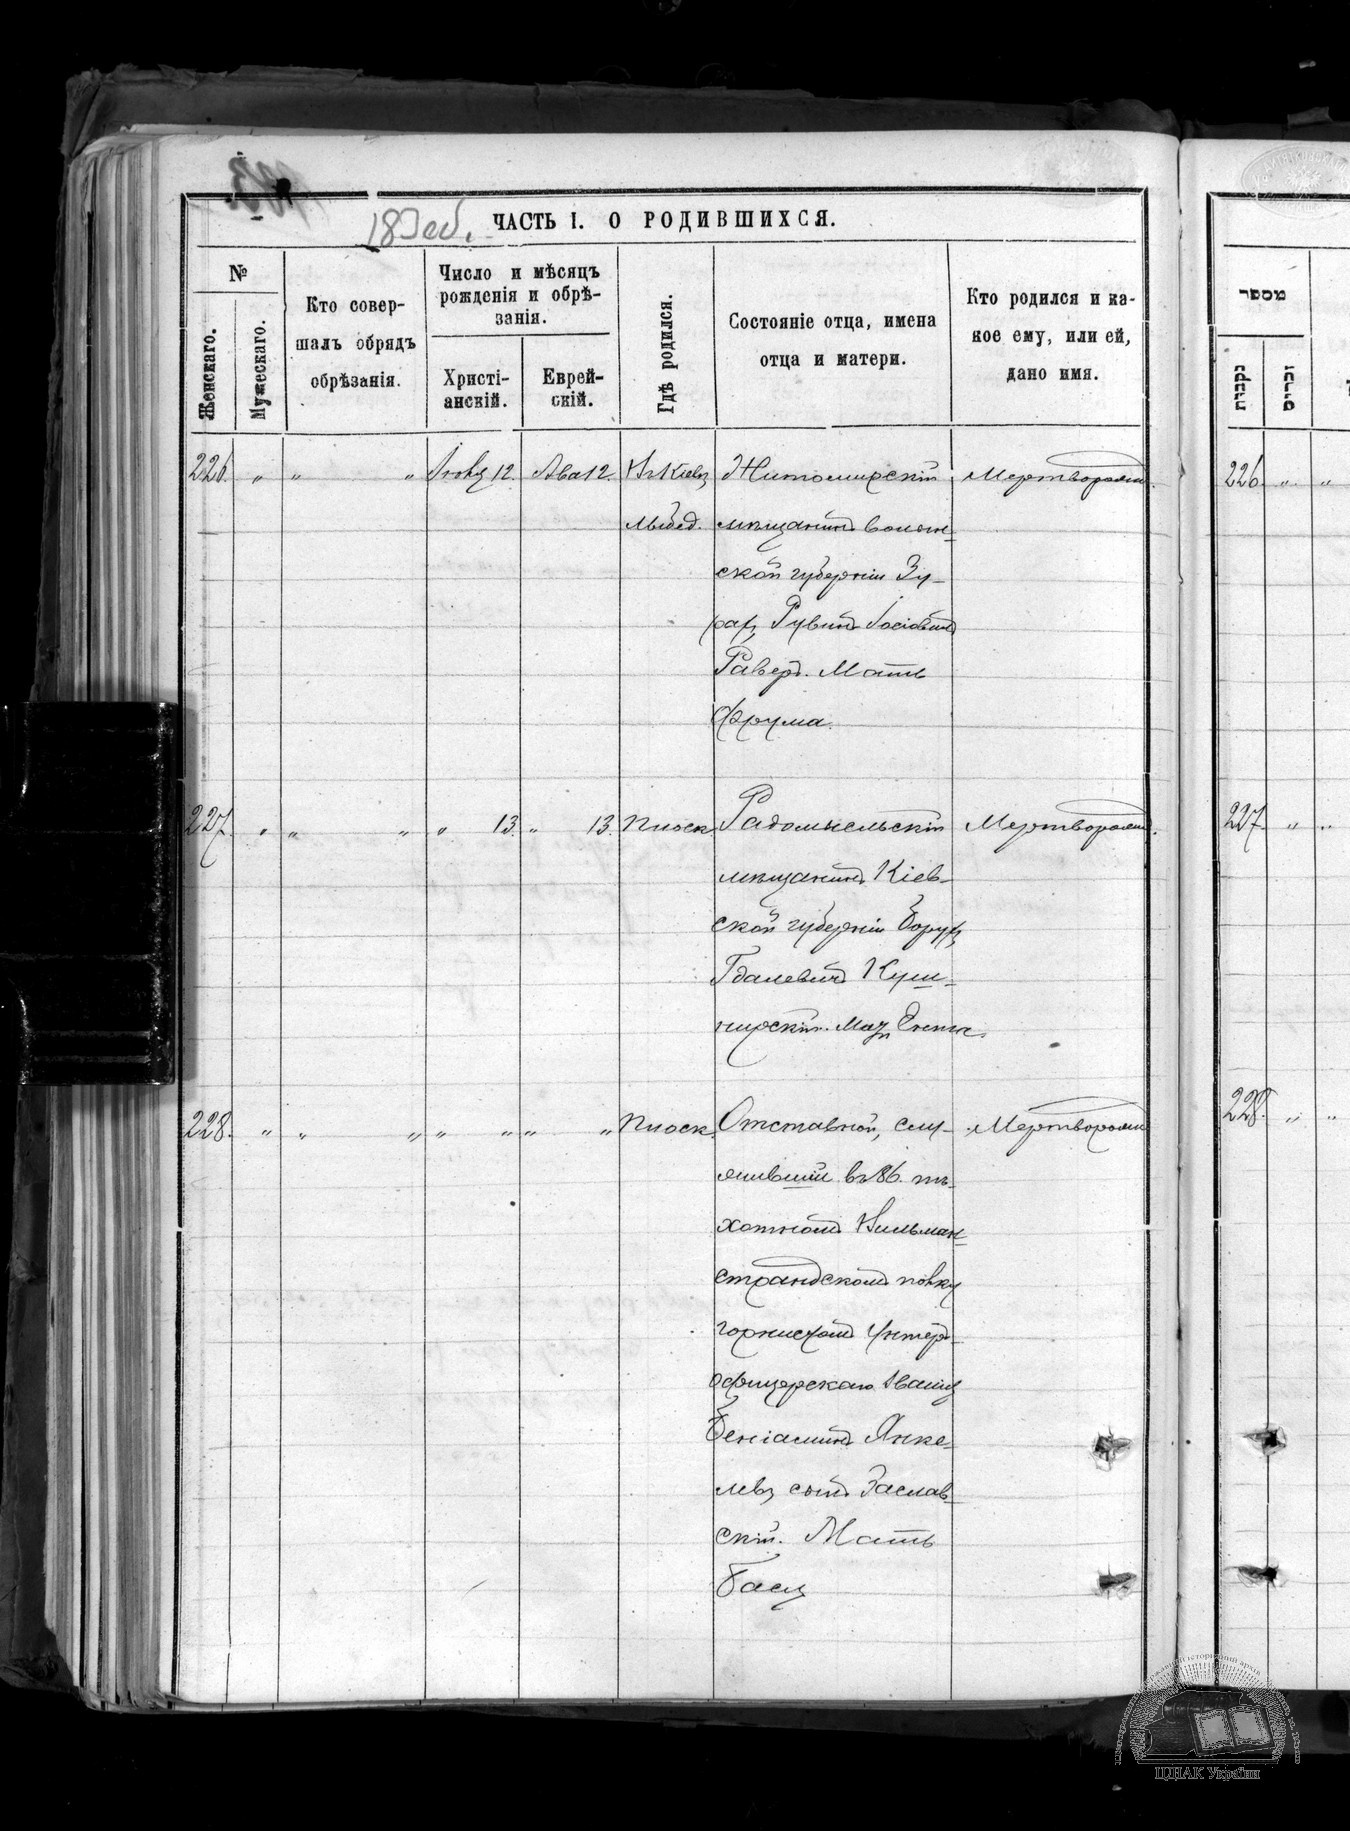 183 об.
ЧАСТЬ I. О РОДИВШИХСЯ.
№
Женскаго.
Мужескаго.
Кто совер-
шалъ обрядъ
обрѣзанія.
Число и мѣсяцъ
рожденія и обрѣ-
занія.
Христі-
анскій.
Еврей-
скій.
Гдѣ родился.
Состояніе отца, имена
отца и матери.
Кто родился и ка-
кое ему, или ей,
дано имя.
226. „ „ „ 12. Ава 12. Въ Кіевѣ Житомирскій Мертворожд.
Лыбед. мѣщанинъ Волын-
ской губерніи
Рувинъ Іосіовичъ
Равер. Мать
Фрума.
227. „ „ „ „ 13. „ 13. Плоск. Радомысльскій Мертворожд.
мѣщанинъ Кіев-
ской губерніи Борухъ
Гдалевичъ Куш-
нирскій. Мать Ента.
228. „ „ „ „ „ „ „ Плоск. Отставной, слу- Мертворожд.
жившій въ 86. пѣ-
хотномъ Вильман-
страндскомъ полку
горнистомъ унтеръ-
офицерскаго званія
Беніаминъ Янке-
левъ сынъ Заслав-
скій. Мать
Бася
מספר
נקבות
זכרים
226. „ „
227. „ „
228. „ „
ЦДІАК України